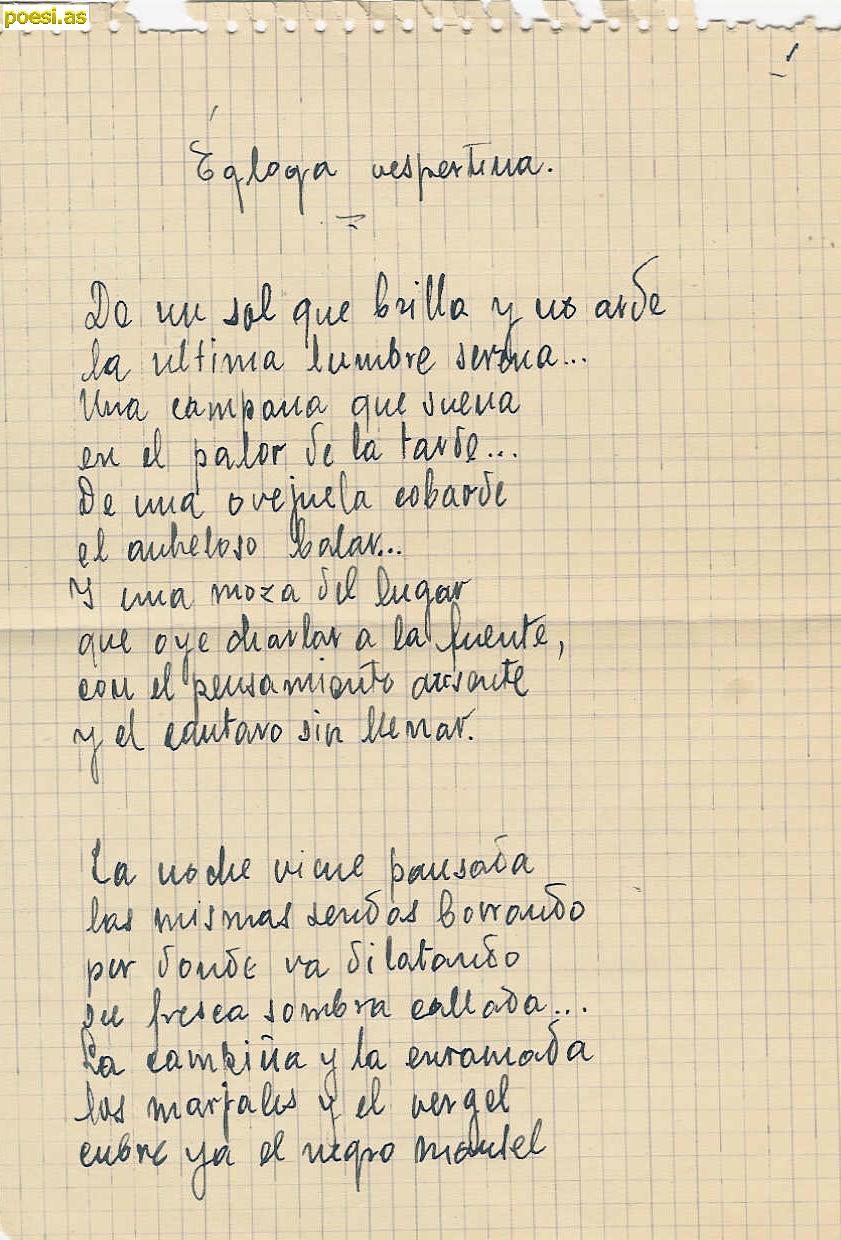 poesi.as
1
Égloga vespertina.
De un sol que brilla y no arde
la ultima lumbre serena...
Una campana que suena
en el palor de la tarde...
De una ovejuela cobarde
el anheloso balar...
Y una moza del lugar
que oye charlar a la fuente,
con el pensamiento ausente
y el cantaro sin llenar.
La noche viene pausada
las mismas sendas borrando
por donde va dilatando
su fresca sombra callada...
La campiña y la enramada
los marjales y el vergel
cubre ya el negro mantel